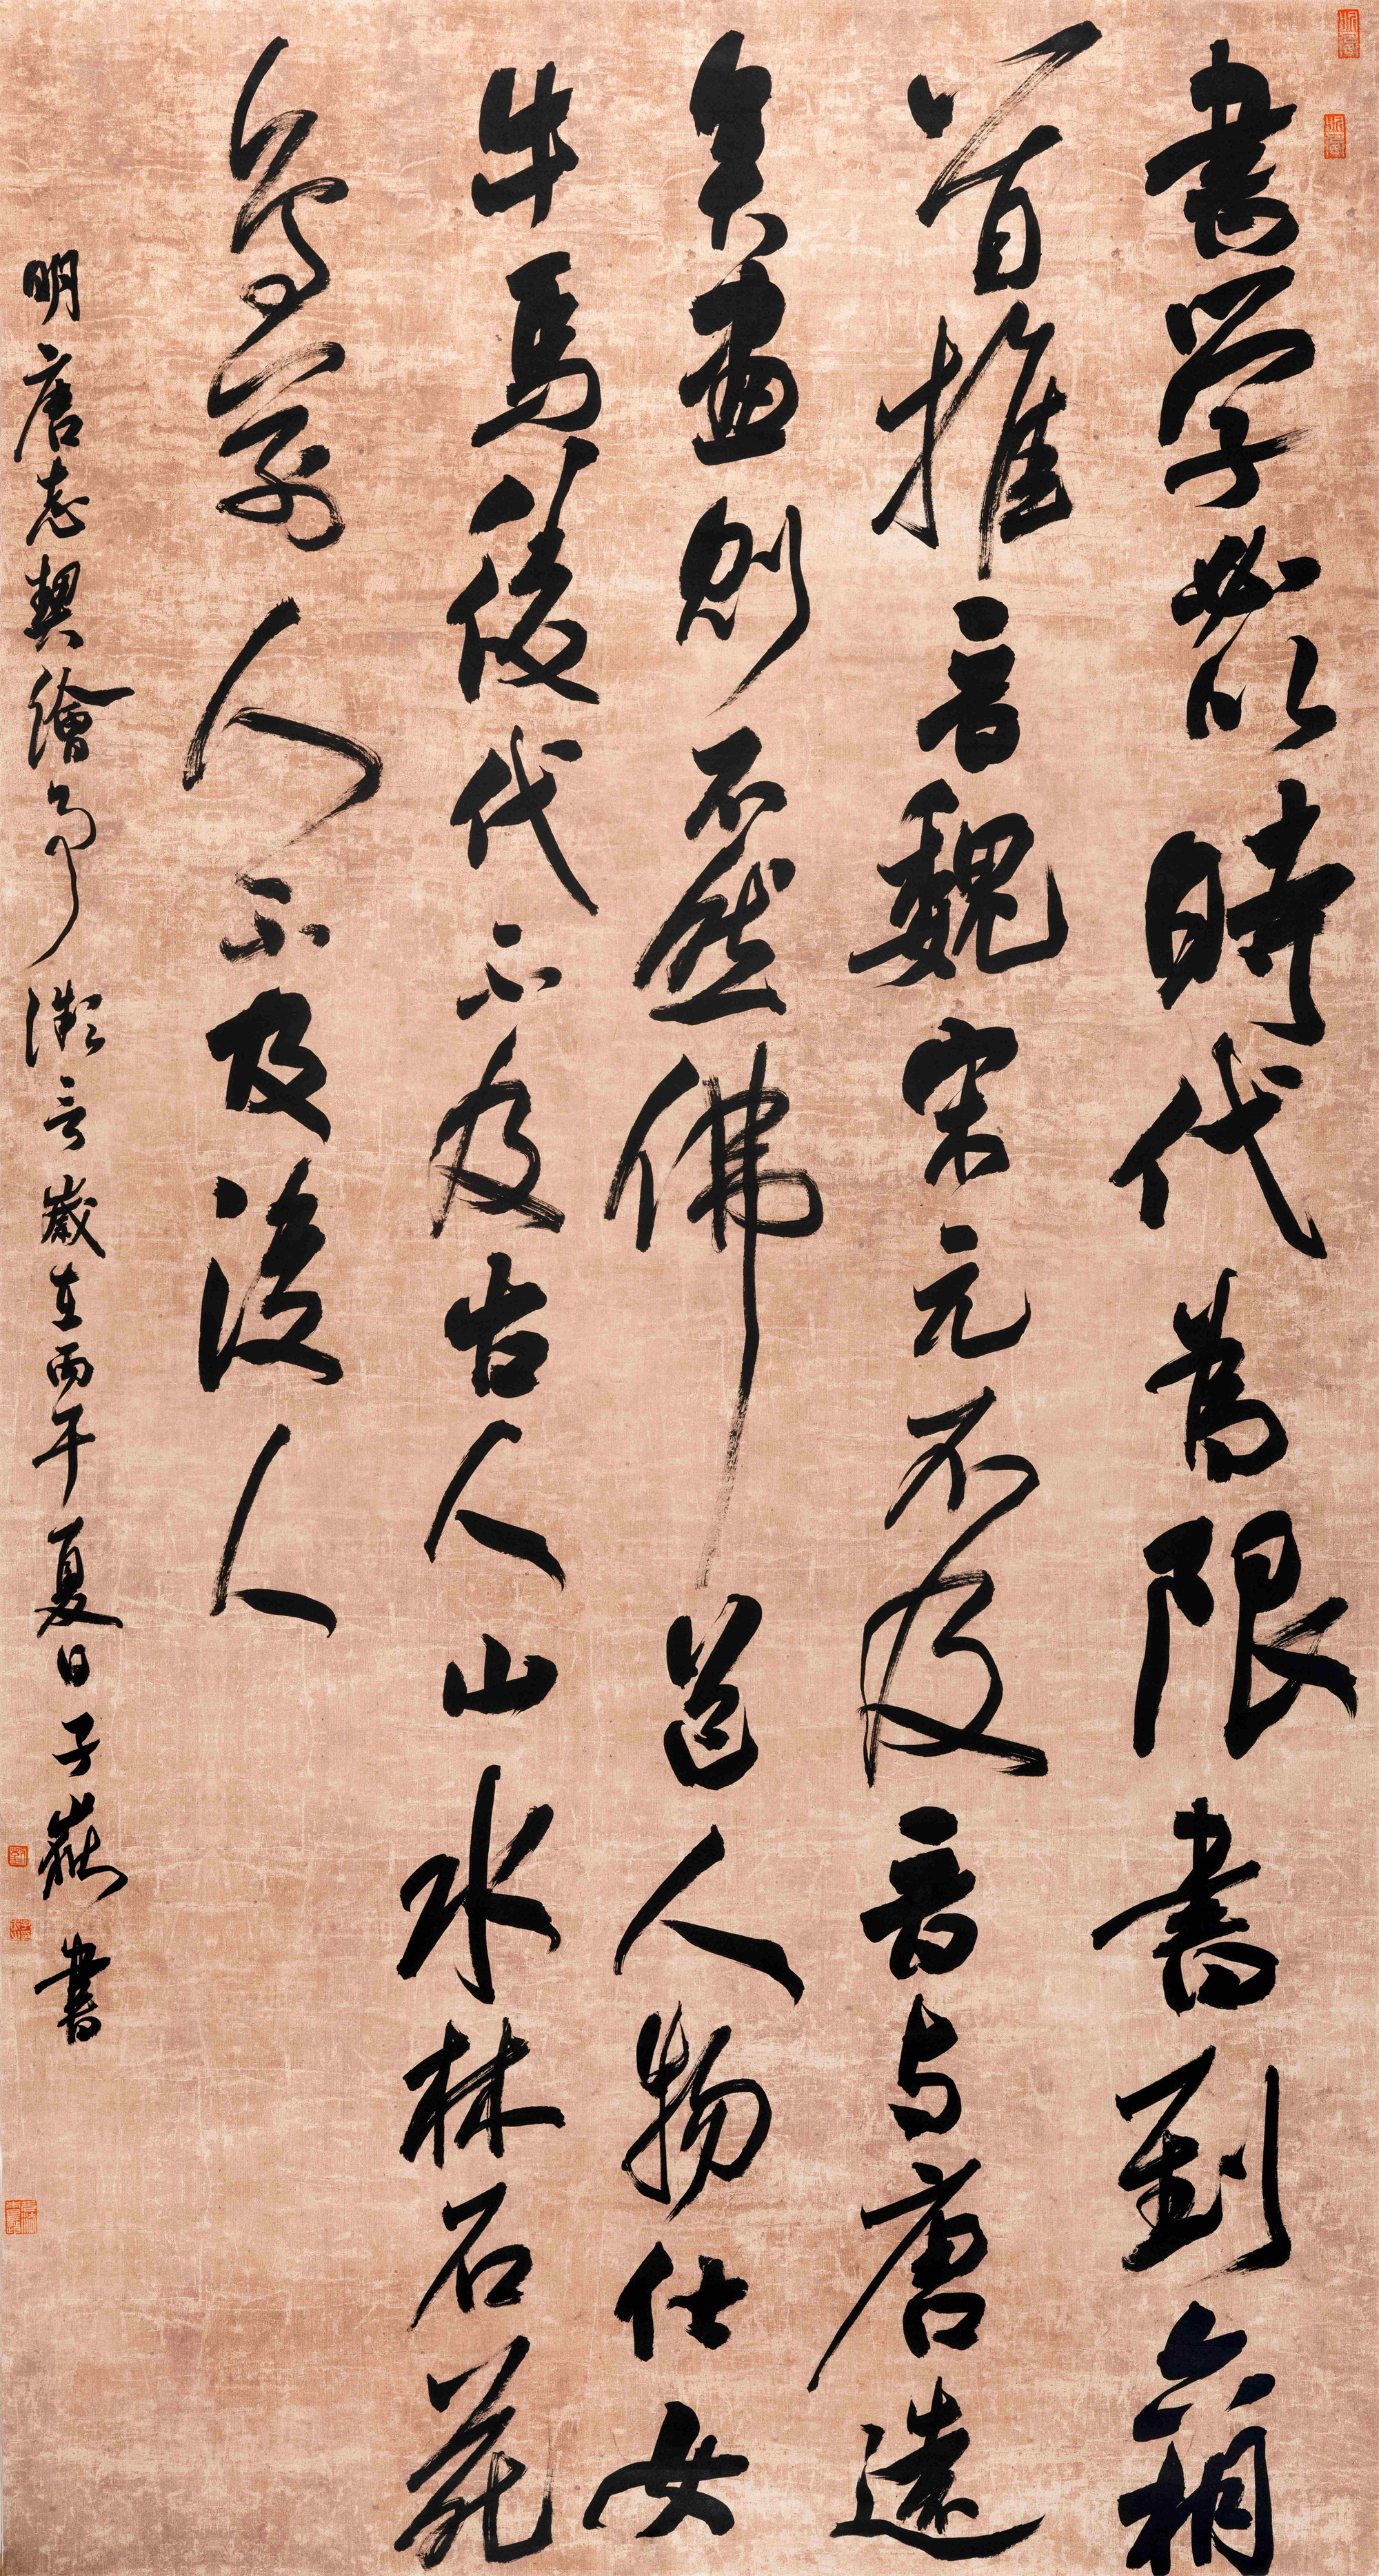 書学必以時代為限書到六朝
首推晉魏宋元不及晉与唐遠
矣畫則不然佛道人物仕女
牛馬後代不及古人山水林石花
鳥前人不及後人
明唐志契繪事微言歲在丙午夏日子嶽書